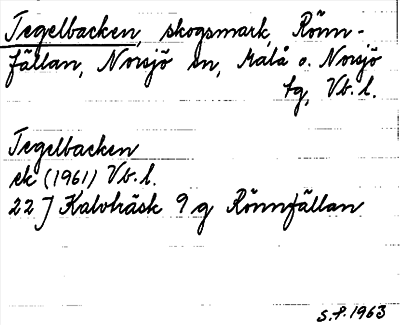 Tegelbacken, skogsmark, Rönn-
fällan, Norsjö sn, Malå o. Norsjö
tg, Vb. l.
Tegelbacken
ek (1961) Vb. l.
22 J Kalvträsk 9 g Rönnfällan
S.P. 1963